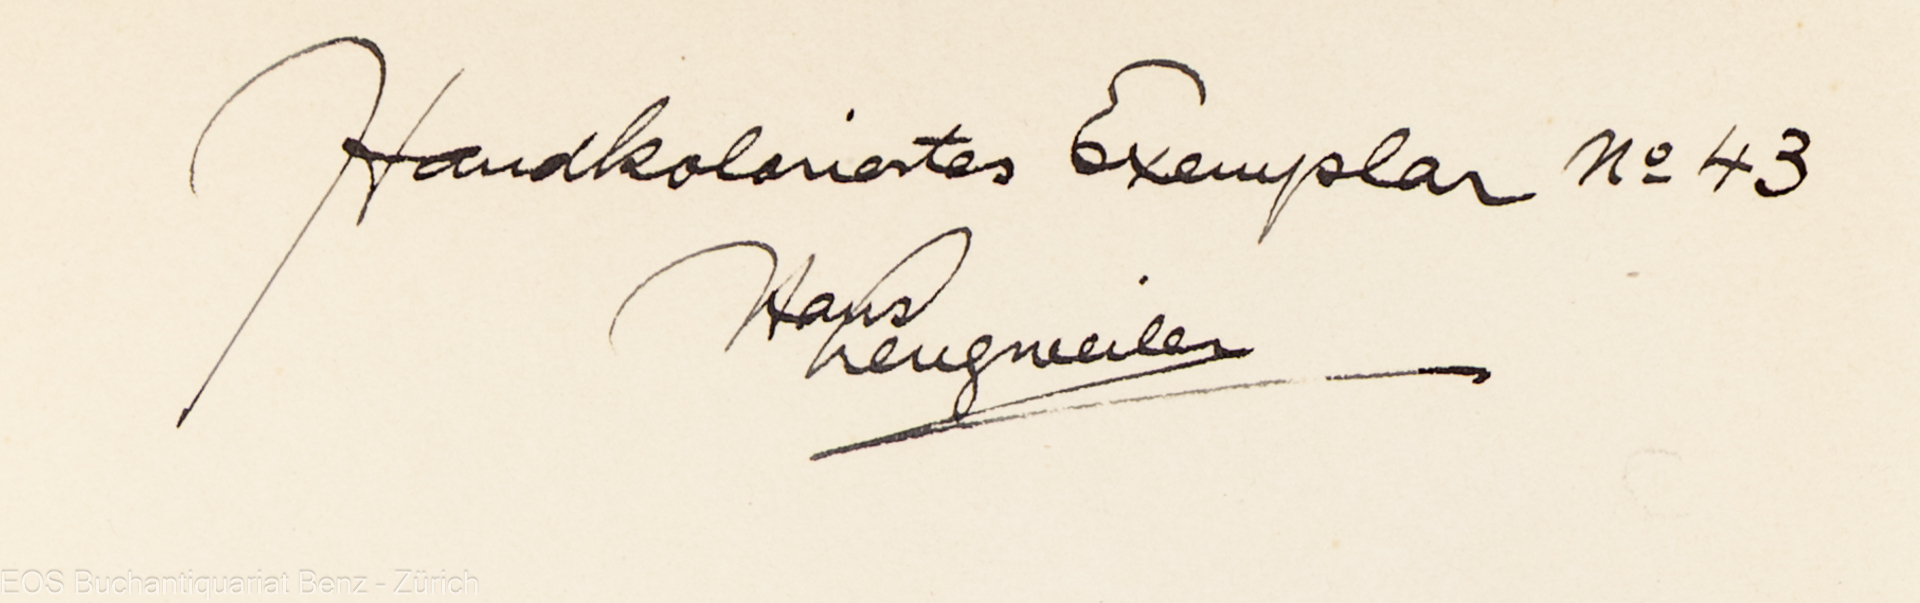 Handkoloriertes Exemplar No 43
Hans
Lengweiler
EOS Buchantiquariat Benz - Zürich